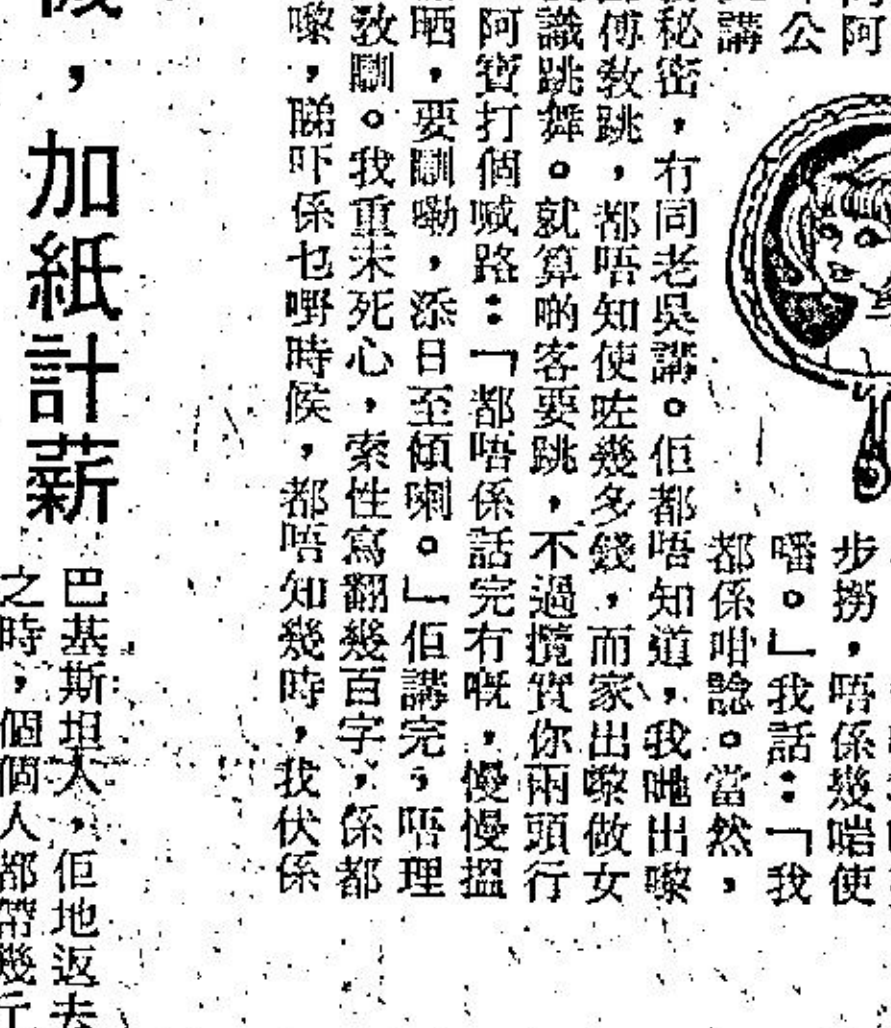 阿
公
講
步撈，唔係幾啱使
噃。」我話：「我
都係咁諗。當然，
秘密，冇同老吳講。佢都唔知道，我哋出嚟
傅教跳，都唔知使咗幾多錢，而家出嚟做女
識跳舞。就算啲客要跳，不過攬實你兩頭行
阿寶打個喊路：「都唔係話完冇嘅，慢慢搵
晒，要瞓嘞，添日至傾喇。」佢講完，唔理
教瞓。我重未死心，索性寫翻幾百字，係都
嚟，睇吓係乜嘢時候，都唔知幾時，我伏係
，加紙計薪
巴基斯坦人，佢地返去
之時，個個人都帶幾斤